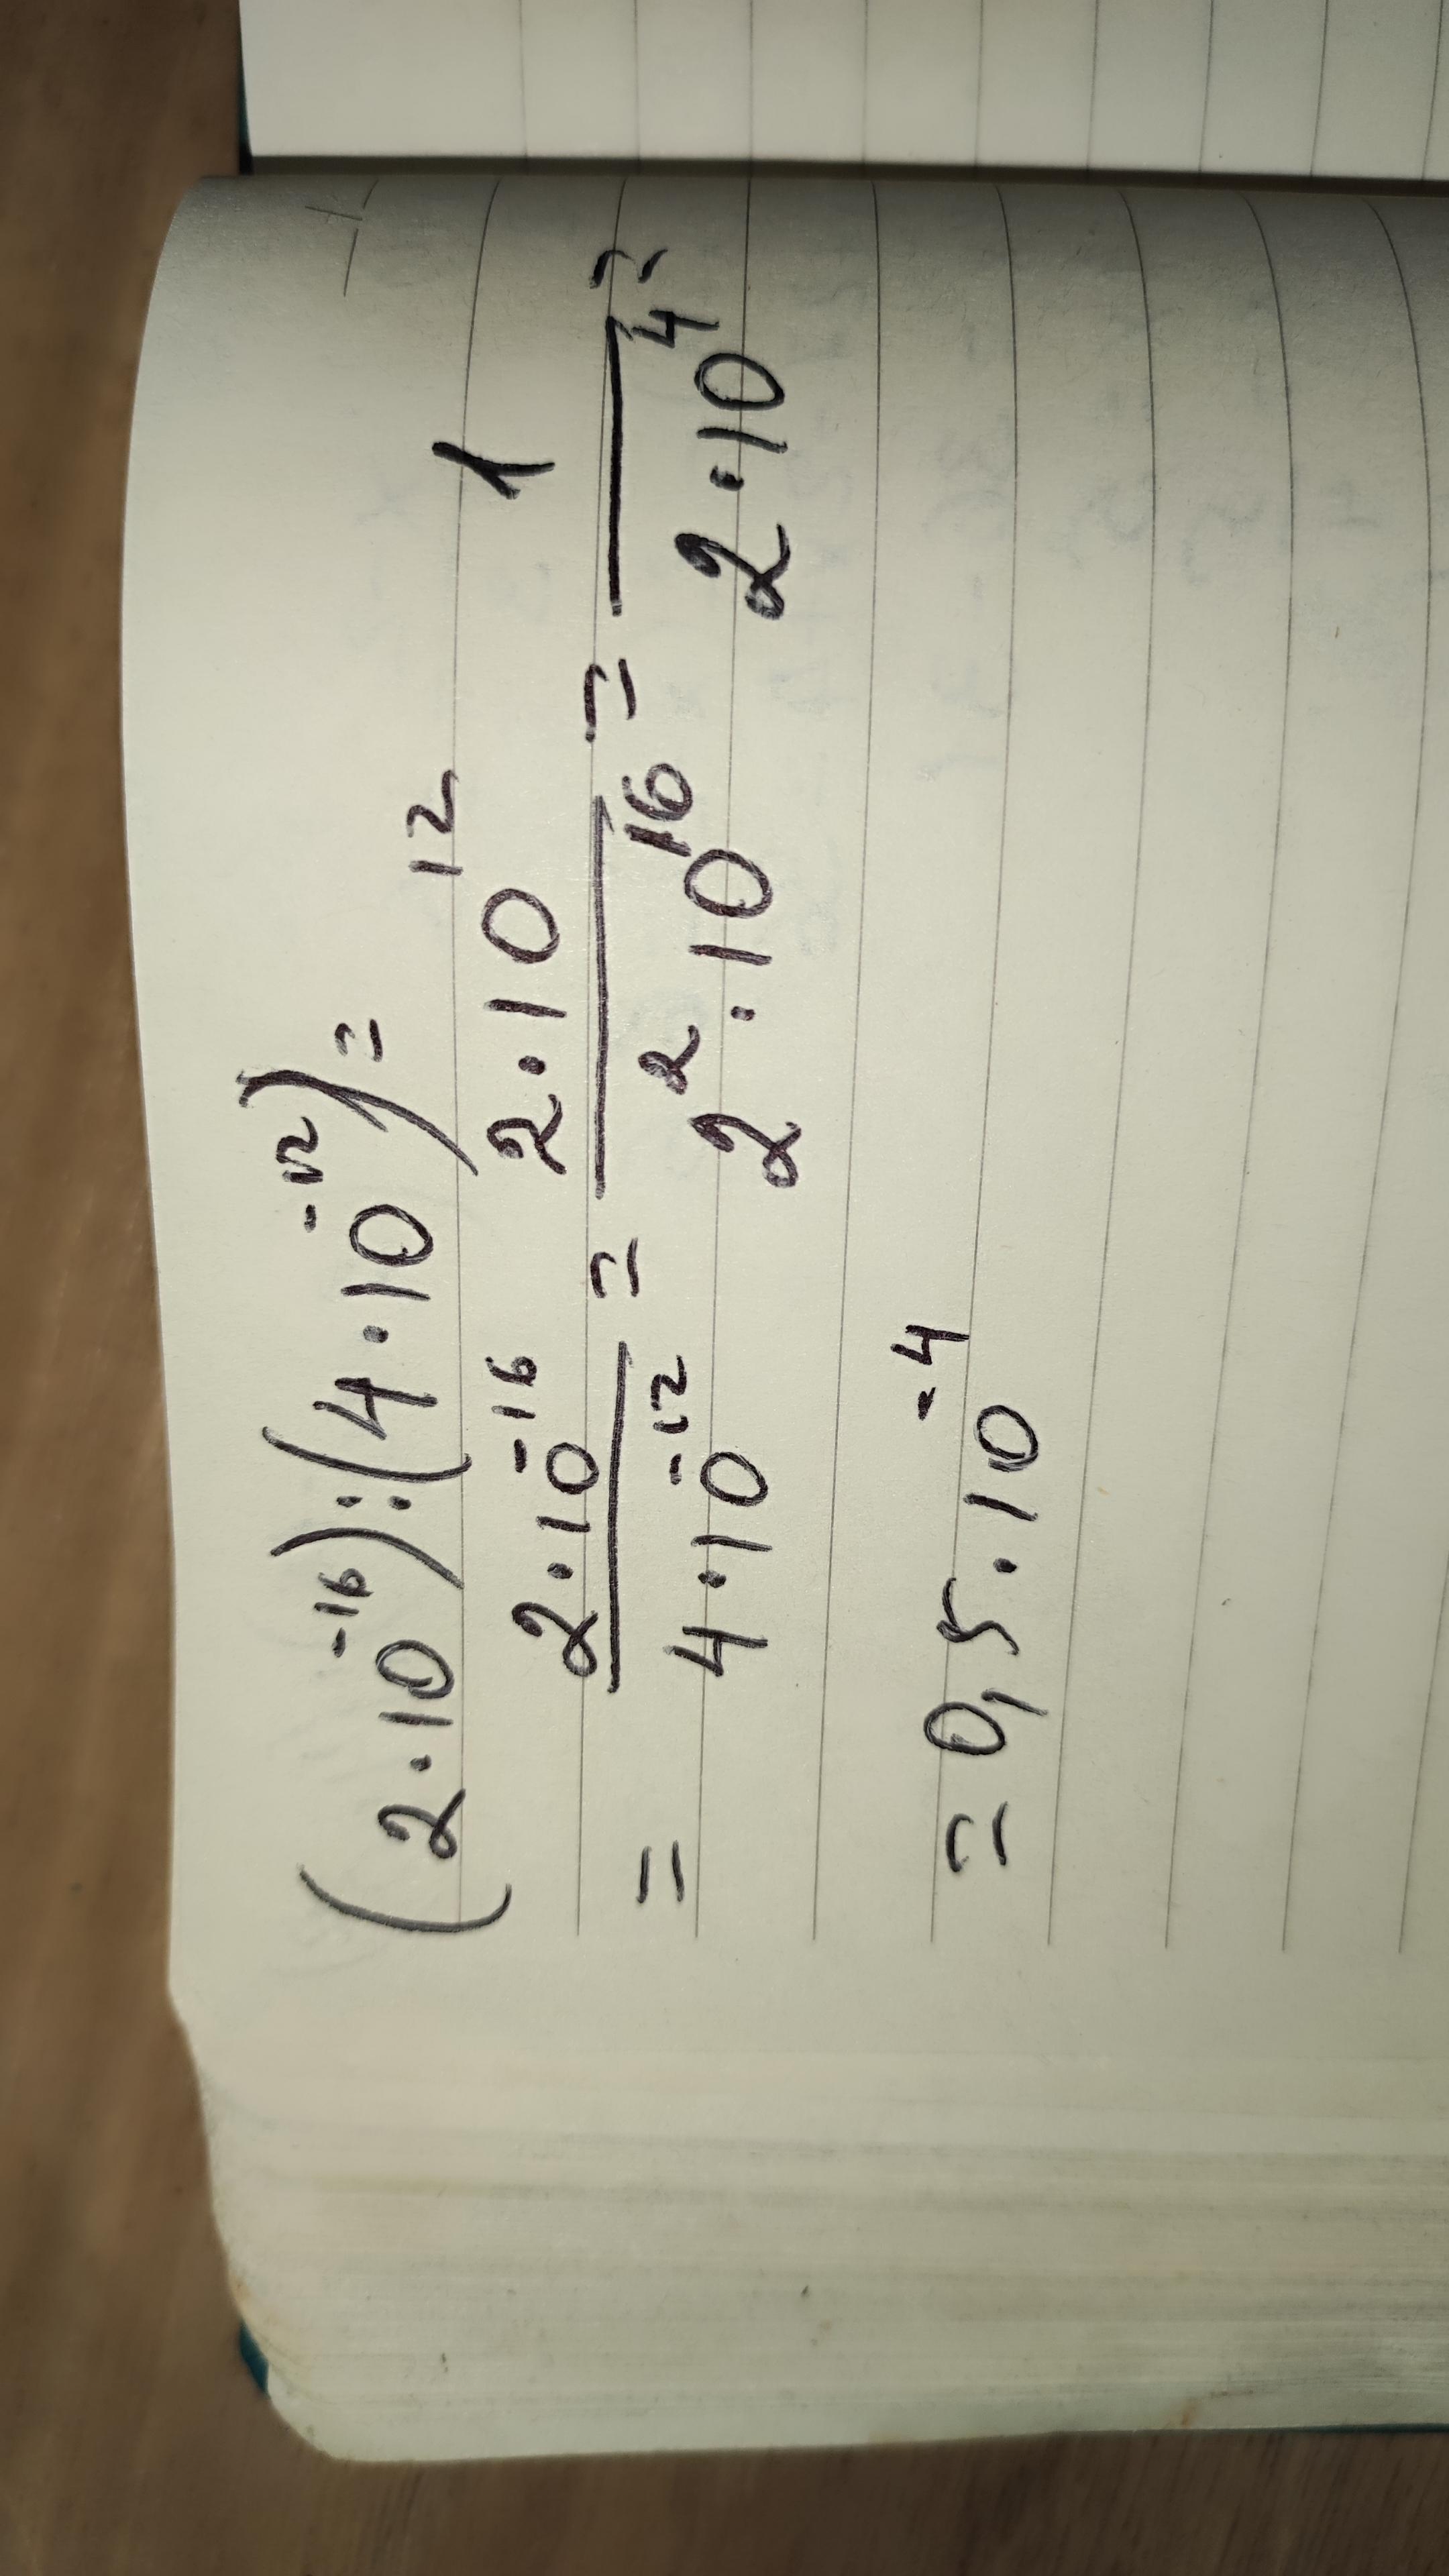 (2·10⁻¹⁶):(4·10⁻¹²)=
= 2·10⁻¹⁶/4·10⁻¹² = 2·10¹²/2²·10¹⁶ = 1/2·10⁴ =
= 0,5·10⁻⁴